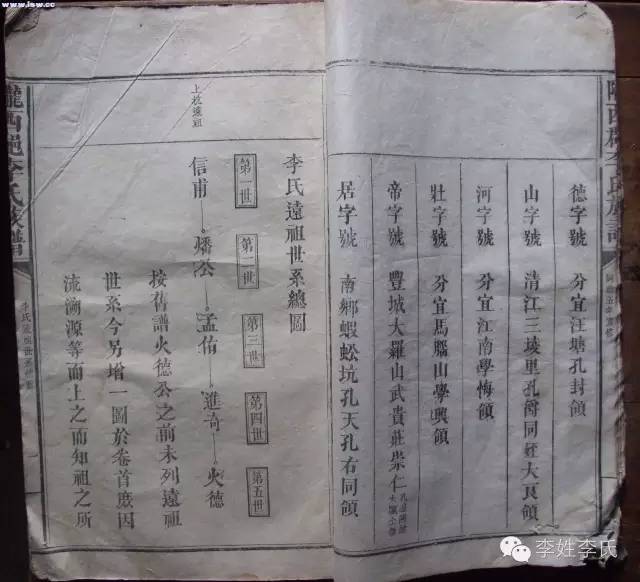 www.lsw.cc
西郡李氏族譜
德字號 分宜汪塘孔封領
山字號 清江三堎里孔衛同 大良領
河字號 分宜江南學悔領
壯字號 分宜馬腦山學興領
帝字號 豐城大羅山武貴莊崇仁
居字號 南鄉蝦蚣坑孔天孔右同領
上杭遠祖
李氏遠祖世系總圖
第一世 第二世 第三世 第四世 第五世
信甫——燔公——孟侑——進奇——火德
按舊譜火德公之前未列遠祖
世系今另增一圖於卷首庶因
流溯源等而上之而知祖之所
隴西郡李氏族譜
李姓李氏